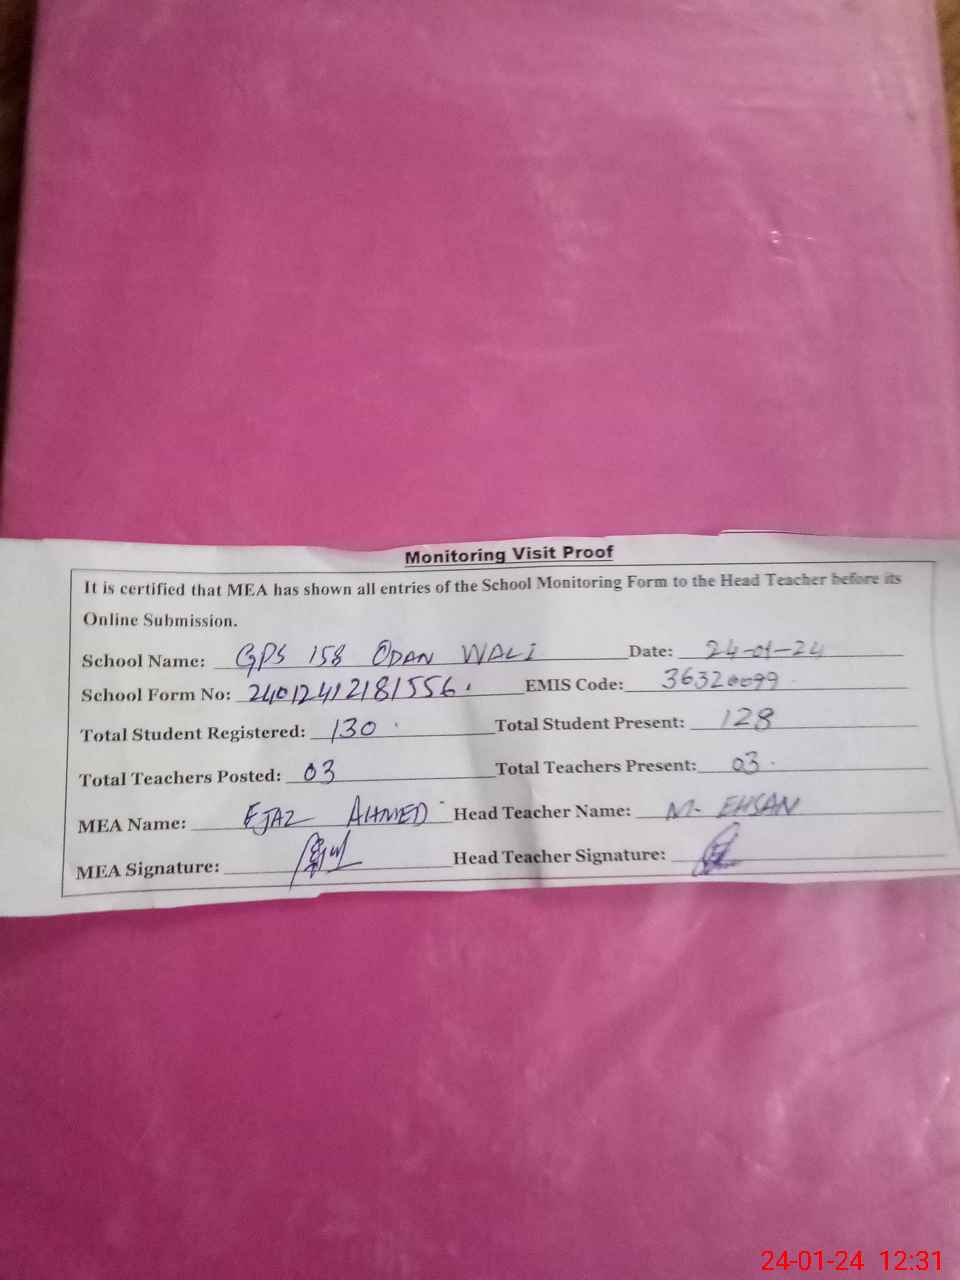 Monitoring Visit Proof
It is certified that MEA has shown all entries of the School Monitoring Form to the Head Teacher before its
Online Submission.
School Name: GPS 158 ODAN WALI Date: 24-01-24
School Form No: 24012412181556. EMIS Code: 36320099
Total Student Registered: 130 Total Student Present: 128
Total Teachers Posted: 03 Total Teachers Present: 03
MEA Name: EJAZ AHMED Head Teacher Name: M. EHSAN
MEA Signature: Head Teacher Signature:
24-01-24 12:31